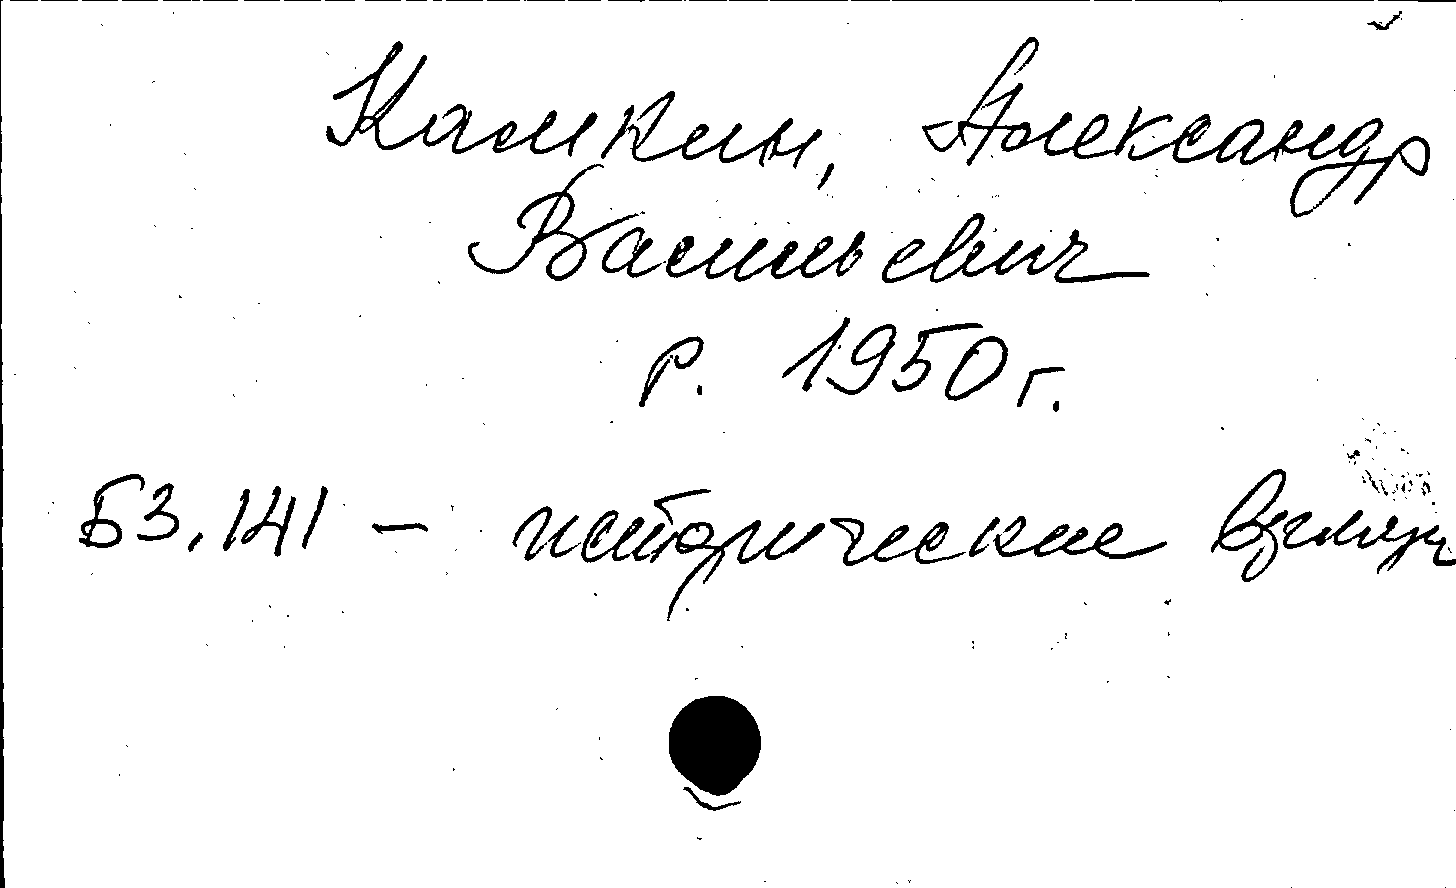 Камкин, Александр
Васильевич
р. 1950 г.
Б3.141 – исторические взгляды